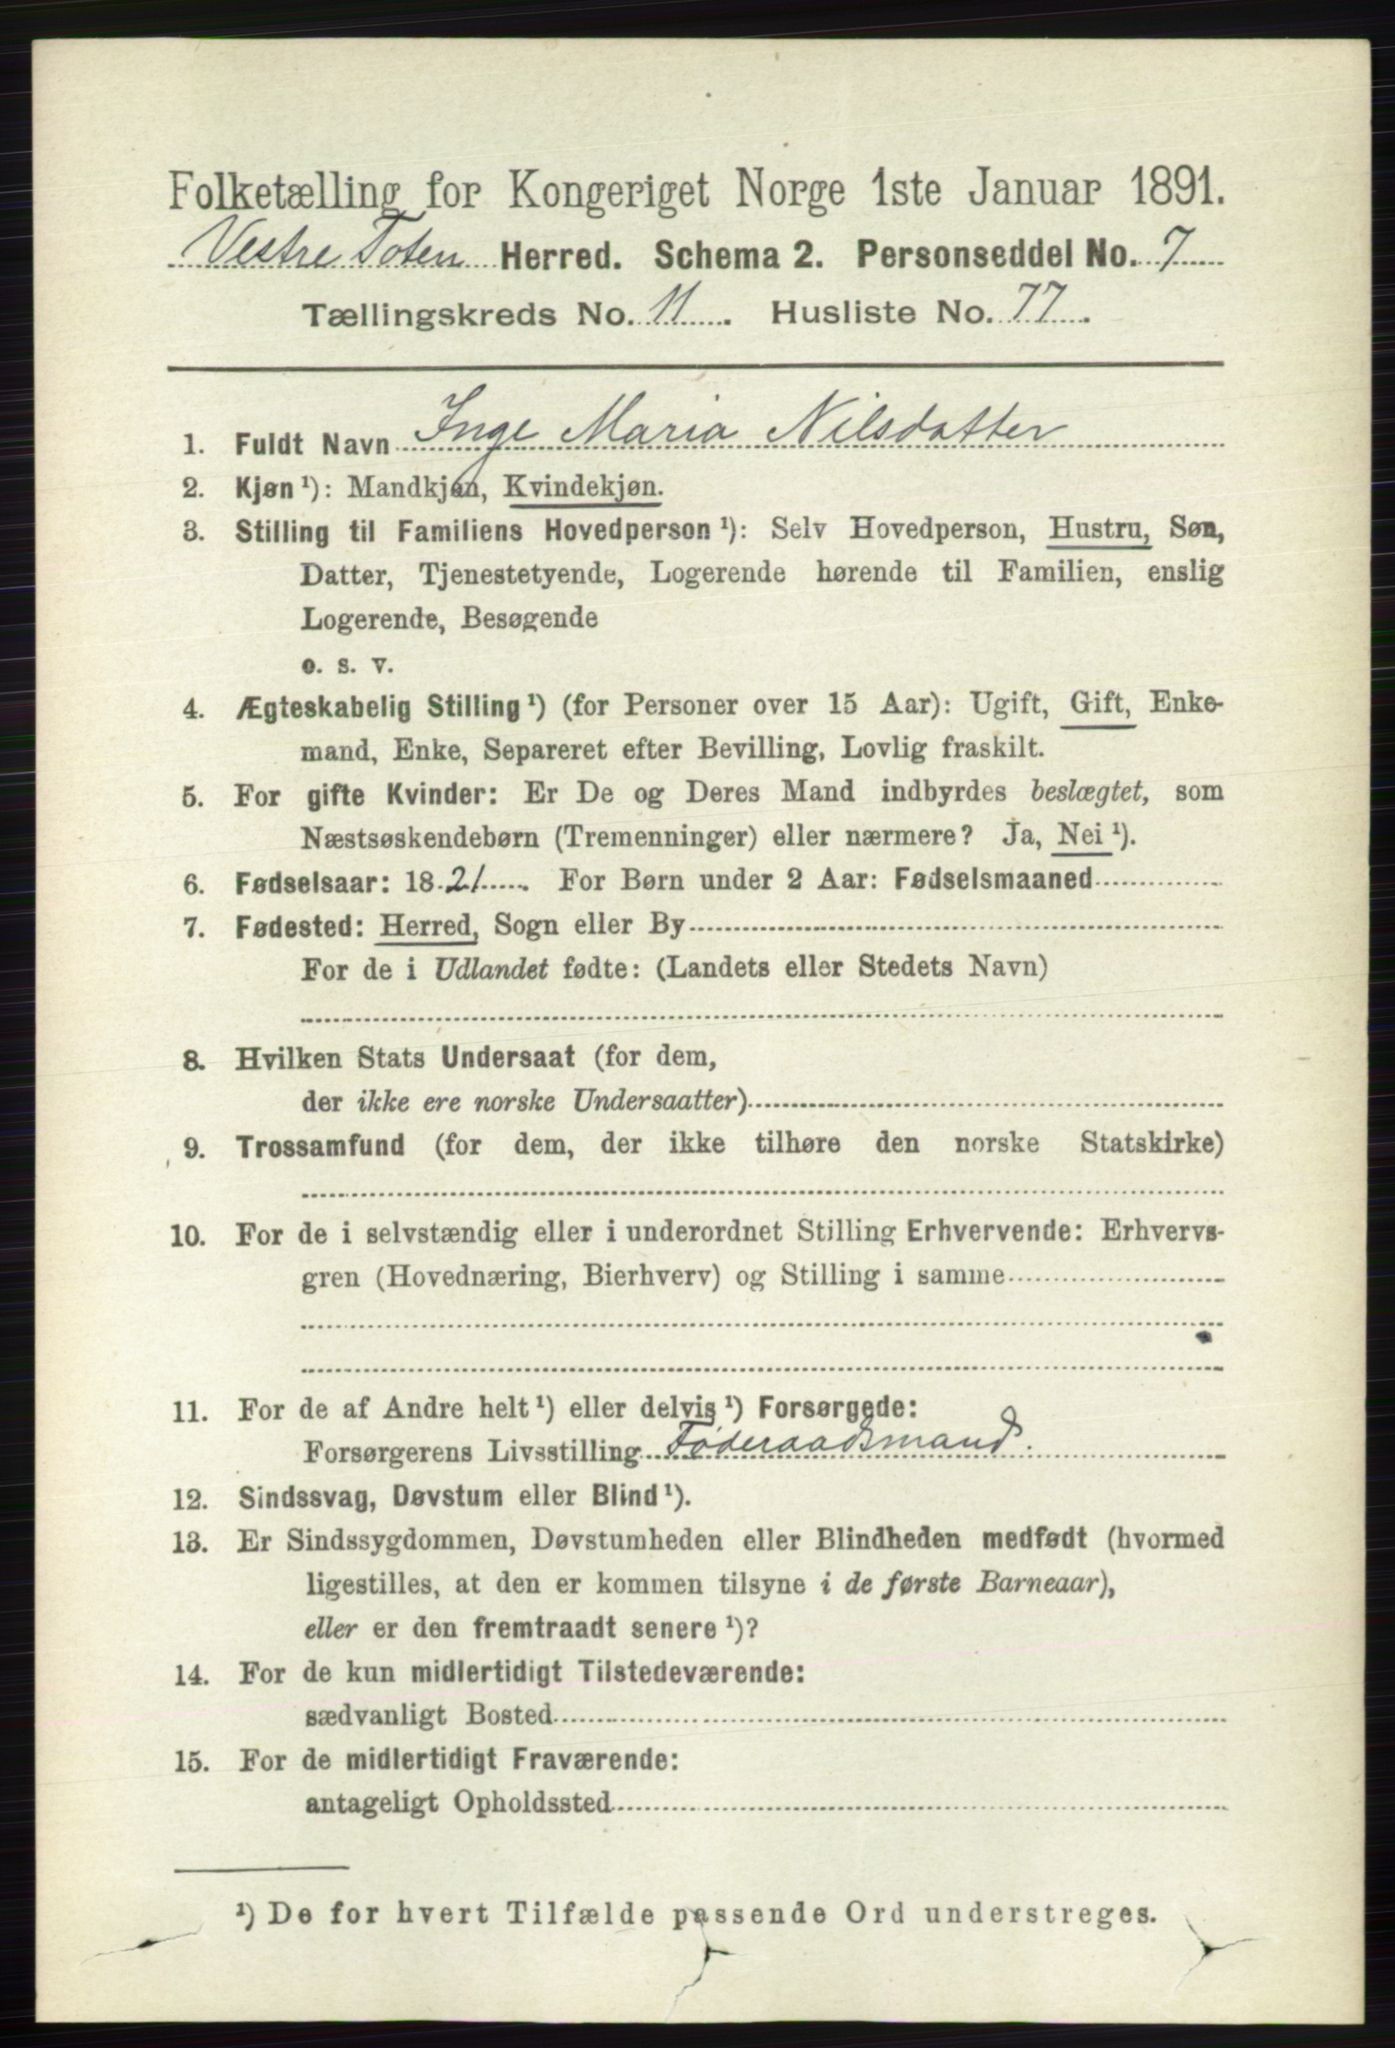 Folketælling for Kongeriget Norge 1ste Januar 1891.
Vestre Toten Herred. Schema 2. Personseddel No. 7
Tællingskreds No. 11. Husliste No. 77.
1. Fuldt Navn Inge Maria Nilsdatter
2. Kjøn ¹): Mandkjøn, Kvindekjøn.
3. Stilling til Familiens Hovedperson ¹): Selv Hovedperson, Hustru, Søn,
Datter, Tjenestetyende, Logerende hørende til Familien, enslig
Logerende, Besøgende
o. s. v.
4. Ægteskabelig Stilling ¹) (for Personer over 15 Aar): Ugift, Gift, Enke-
mand, Enke, Separeret efter Bevilling, Lovlig fraskilt.
5. For gifte Kvinder: Er De og Deres Mand indbyrdes beslægtet, som
Næstsøskendebørn (Tremenninger) eller nærmere? Ja, Nei ¹).
6. Fødselsaar: 1821. For Børn under 2 Aar: Fødselsmaaned
7. Fødested: Herred, Sogn eller By
For de i Udlandet fødte: (Landets eller Stedets Navn)
8. Hvilken Stats Undersaat (for dem,
der ikke ere norske Undersaatter)
9. Trossamfund (for dem, der ikke tilhøre den norske Statskirke)
10. For de i selvstændig eller i underordnet Stilling Erhvervende: Erhvervs-
gren (Hovednæring, Bierhverv) og Stilling i samme
11. For de af Andre helt ¹) eller delvis ¹) Forsørgede:
Forsørgerens Livsstilling Føderaadsmand.
12. Sindssvag, Døvstum eller Blind ¹).
13. Er Sindssygdommen, Døvstumheden eller Blindheden medfødt (hvormed
ligestilles, at den er kommen tilsyne i de første Barneaar),
eller er den fremtraadt senere ¹)?
14. For de kun midlertidigt Tilstedeværende:
sædvanligt Bosted
15. For de midlertidigt Fraværende:
antageligt Opholdssted
¹) De for hvert Tilfælde passende Ord understreges.